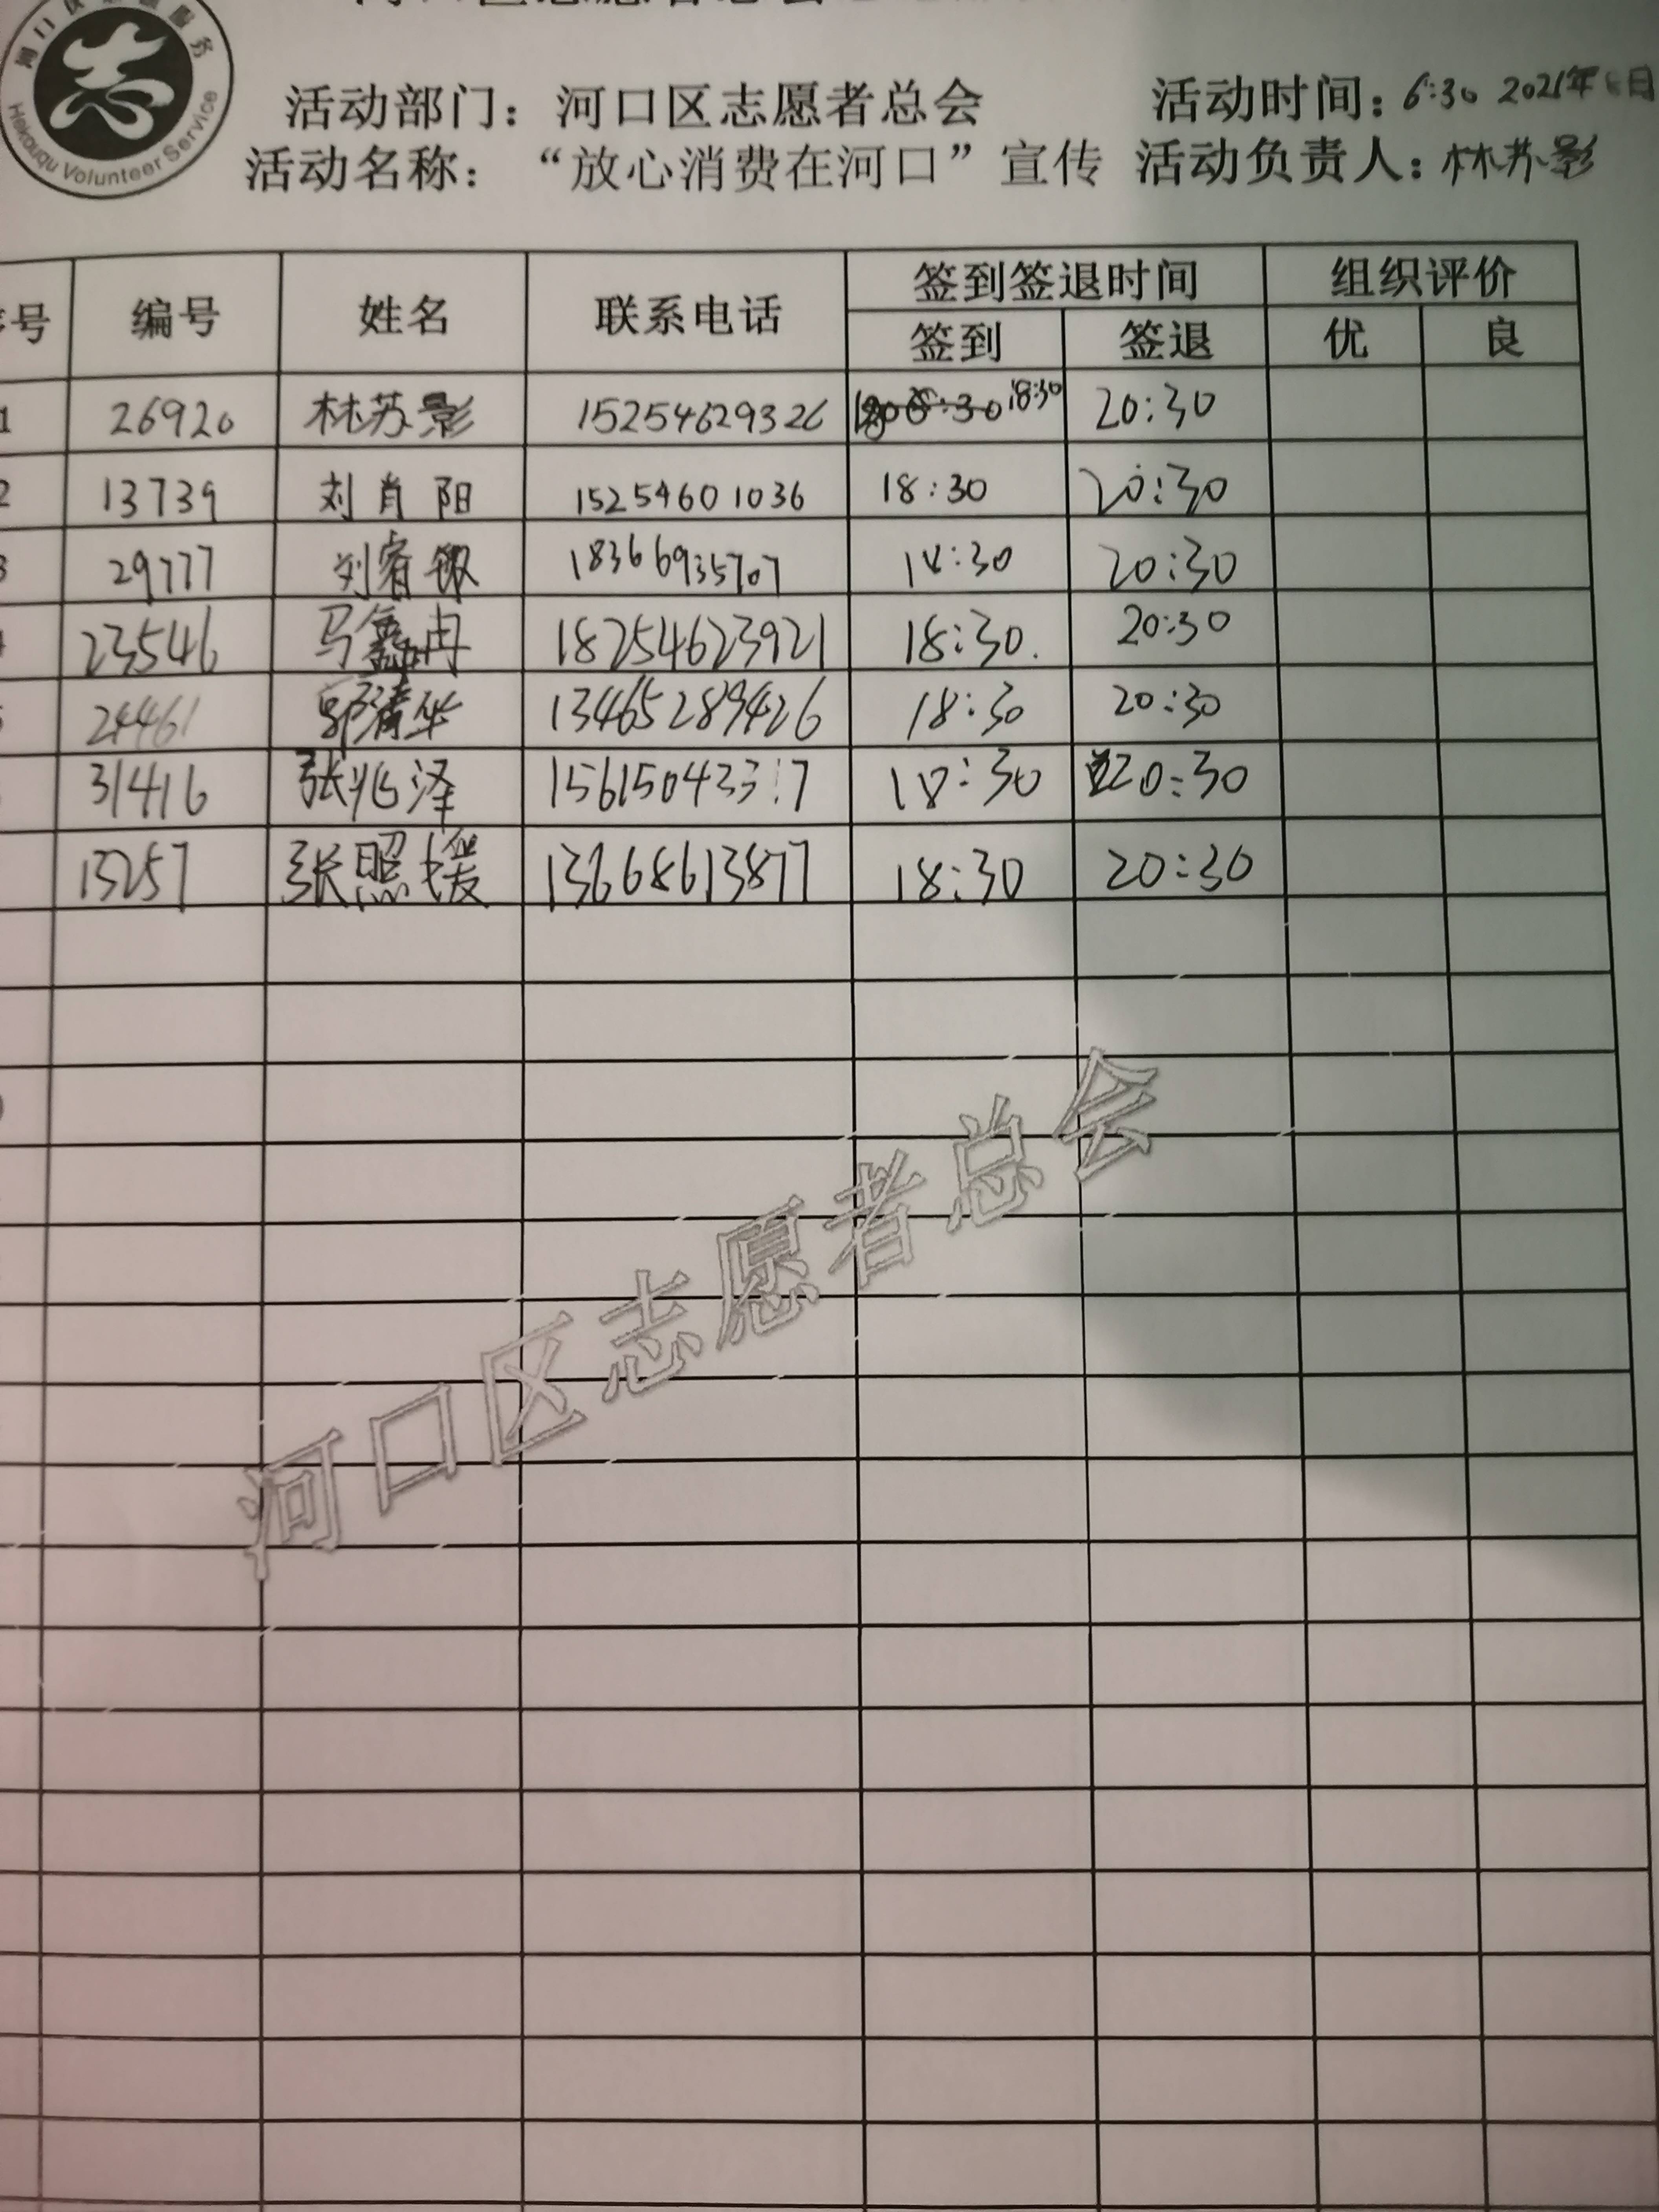 河口区志愿服务
Hekouqu Volunteer Service
活动部门：河口区志愿者总会 活动时间：6:30 2021年 日
活动名称：“放心消费在河口”宣传 活动负责人：林苏影
号 编号 姓名 联系电话 签到签退时间 组织评价
签到 签退 优 良
1 26920 林苏影 15254629326 18:30 20:30
2 13739 刘肖阳 15254601036 18:30 20:30
3 29777 刘睿银 18366935707 18:30 20:30
23546 马鑫冉 18254623921 18:30. 20:30
24461 郭清华 13465289426 18:30 20:30
31416 张兆泽 18:30 20:30
13257 张照援 18:30 20:30
河口区志愿者总会